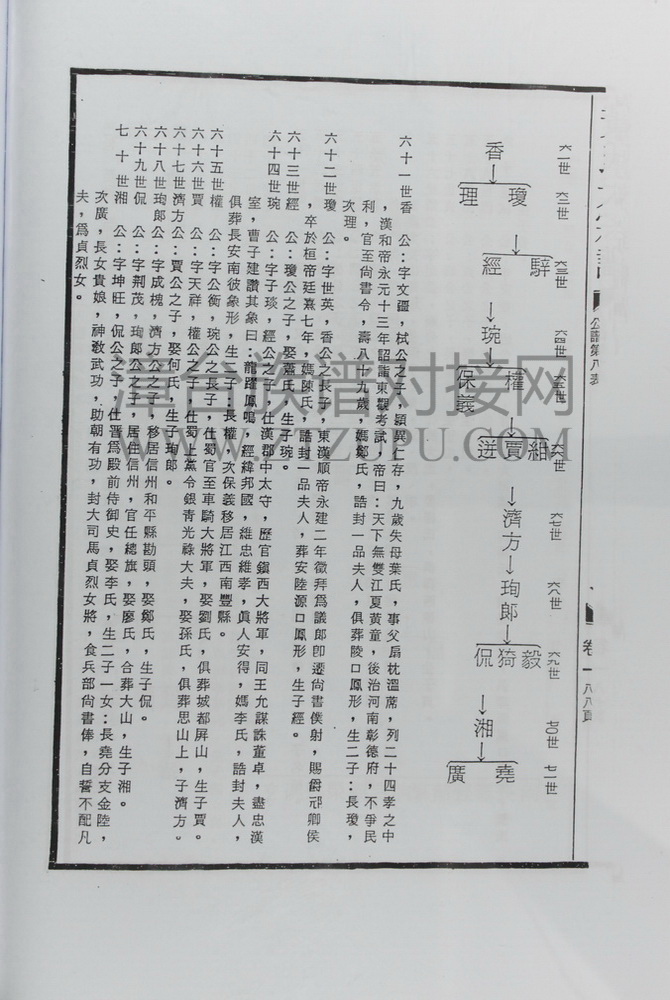 公譜第八表
卷一 八八頁
六一世 六二世 六三世 六四世 六五世 六六世 六七世 六八世 六九世 七〇世 七一世
香→
瓊
理
→
騂
經
→琬→
權
保義
→
賈
→濟方→珣郎→
毅
猗
侃
→湘→
堯
廣
六十一世香 公:字文疆,栻公之子,穎異仁存,九歲失母葉氏,事父扇枕溫蓆,列二十四孝之中
,漢和帝永元十三年詔詣東觀考試,帝曰:天下無雙江夏黃童,後治河南彰德府,不爭民
利,官至尚書令,壽八十九歲,媽鄭氏,誥封一品夫人,俱葬陵口鳳形,生二子:長瓊,
次理。
六十二世瓊 公:字世英,香公之長子,東漢順帝永建二年徵拜爲議郎卽遷尚書僕射,賜爵祁卿侯
,卒於桓帝廷熹七年,媽陳氏,誥封一品夫人,葬安陸源口鳳形,生子經。
六十三世經 公:瓊公之子,娶蓋氏,生子琬。
六十四世琬 公:字子琰,經公之子,仕漢郡中太守,歷官鎭西大將軍,同王允謀誅董卓,盡忠漢
室,曹子建讚其象曰:龍躍鳳鳴,經緯邦國,維忠維孝,眞人安得,媽李氏,誥封夫人,
俱葬長安南彼象形,生二子:長權,次保義移居江西南豐縣。
六十五世權 公:字公衡,琬公之長子,仕蜀官至車騎大將軍,娶劉氏,俱葬城都屏山,生子賈。
六十六世賈 公:字天祥,權公之子,仕蜀上黨令銀青光祿大夫,娶孫氏,俱葬思山上,子濟方。
六十七世濟方公:賈公之子,娶何氏,生子珣郎。
六十八世珣郎公:字成槐,濟方公之子,移居信州和平縣勘頭,娶鄭氏,生子侃。
六十九世侃 公:字荆茂,珣郎公之子,居住信州,官任總旗,娶廖氏,合葬大山,生子湘。
七十世湘 公:字坤旺,侃公之子,仕晋爲殿前侍御史,娶李氏,生二子一女:長堯分支金陸,
次廣,長女貴娘,神教武功,助朝有功,封大司馬貞烈女將,食兵部尚書俸,自誓不配凡
夫,爲貞烈女。
漳台族谱对接网
WWW.ZTZUPU.COM